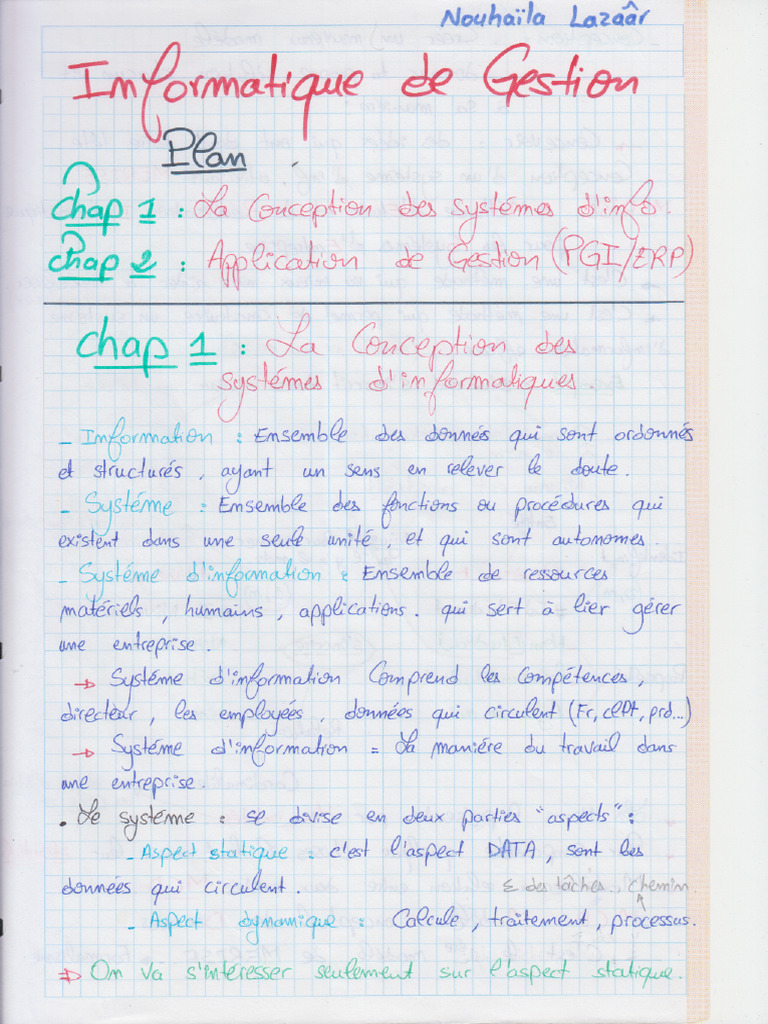 Nouhaïla Lazaâr
Informatique de Gestion
Plan
Chap 1 : La Conception des systémes d'info.
Chap 2 : Application de Gestion (PGI/ERP)
Chap 1 : La Conception des
systémes d'informatiques.
- Information : Ensemble des donnés qui sont ordonnés
et structurés, ayant un sens en relever le doute.
- Systéme : Ensemble des fonctions ou procédures qui
existent dans une seule unité, et qui sont autonomes.
- Systéme d'information : Ensemble de ressources
matériels, humains, applications. qui sert à lier gérer
une entreprise.
→ Systéme d'information Comprend les compétences,
directeur, les employées, données qui circulent (Fr, clet, prd...)
→ Systéme d'information = La maniére du travail dans
une entreprise.
• Le systéme : se divise en deux parties "aspects" :
- Aspect statique : c'est l'aspect DATA, sont les
données qui circulent.
Σ des tâches, chemin.
- Aspect dynamique : Calcule, traitement, processus.
⇒ On va s'intéresser seulement sur l'aspect statique.